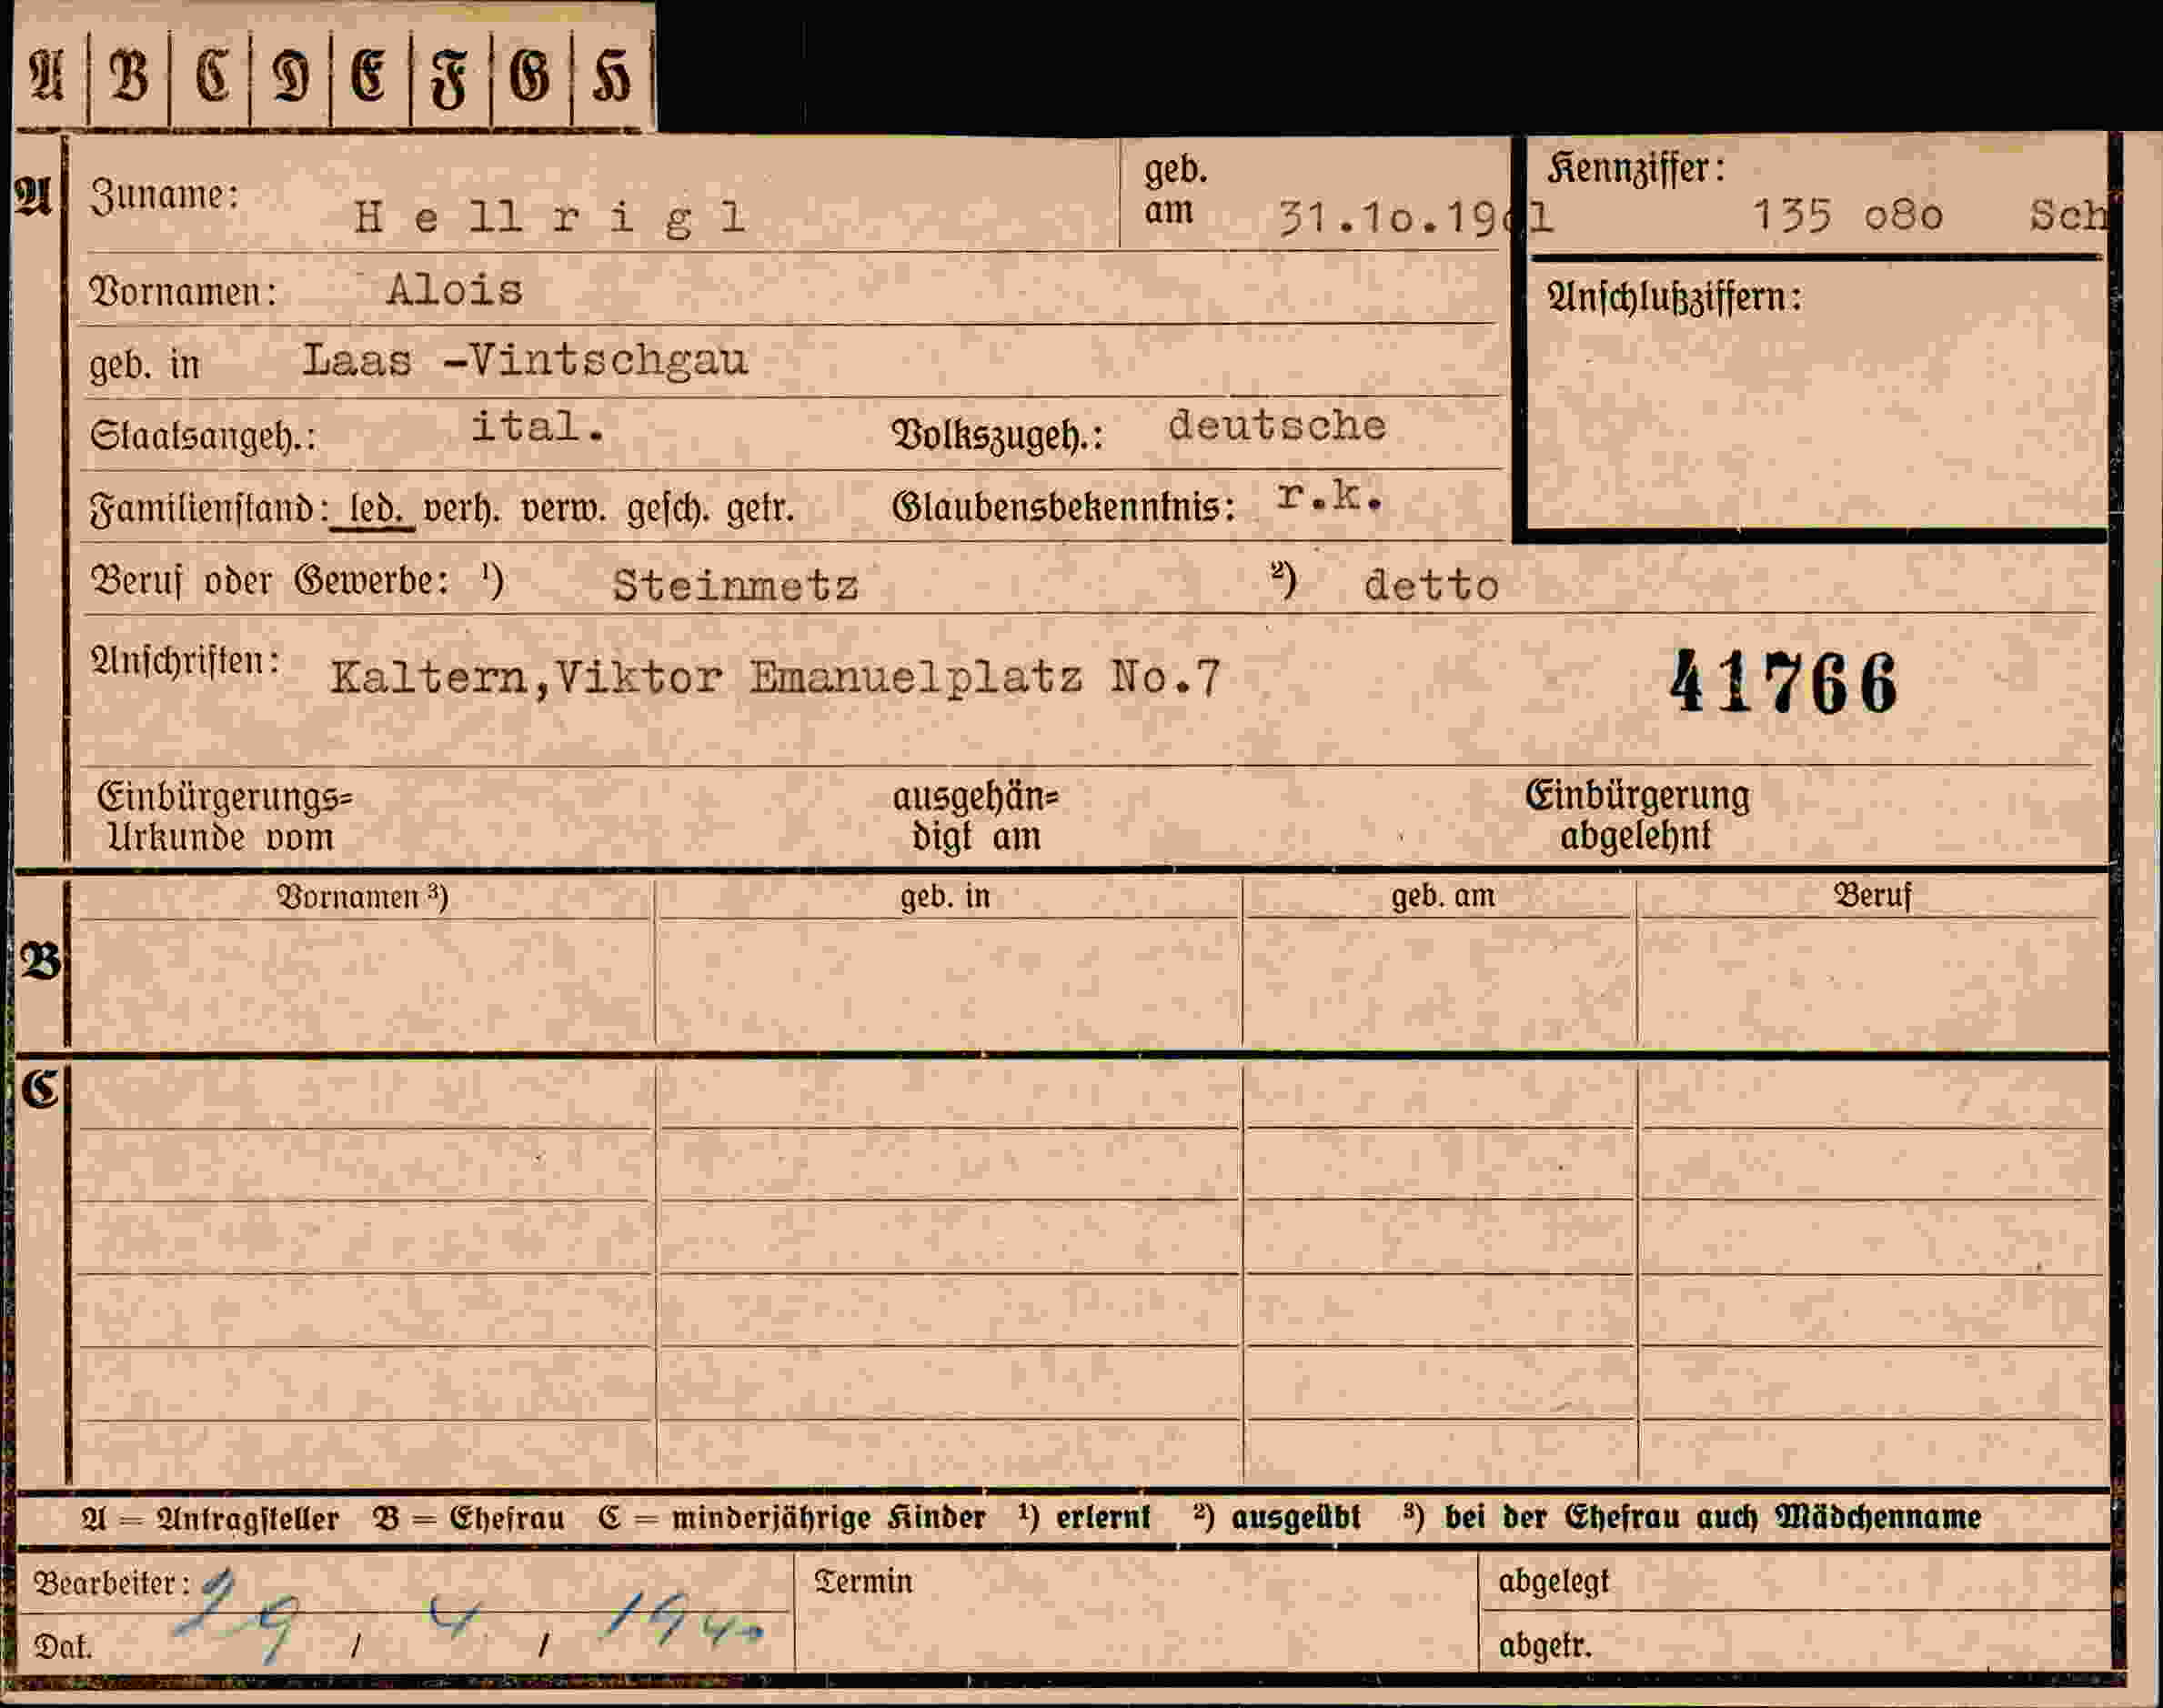 A B C D E F G H
A Zuname: Hellrigl geb. am 31.10.1901 Kennziffer: 135 o8o Sch
Vornamen: Alois Anschlußziffern:
geb. in Laas -Vintschgau
Staatsangeh.: ital. Volkszugeh.: deutsche
Familienstand: led. verh. verw. gesch. getr. Glaubensbekenntnis: r.k.
Beruf oder Gewerbe: ¹) Steinmetz ²) detto
Anschriften: Kaltern,Viktor Emanuelplatz No.7 41766
Einbürgerungs= ausgehän= Einbürgerung
Urkunde vom digt am abgelehnt
Vornamen ³) geb. in geb. am Beruf
B
C
A = Antragsteller B = Ehefrau C = minderjährige Kinder ¹) erlernt ²) ausgeübt ³) bei der Ehefrau auch Mädchenname
Bearbeiter: Termin abgelegt
Dat. 29 / 4 / 1940 abgetr.